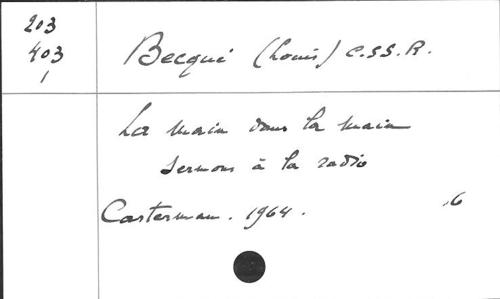 203
403
1
Becqué (Louis) C.SS.R.
La main dans la main
sermons à la radio
Casterman. 1964. 16